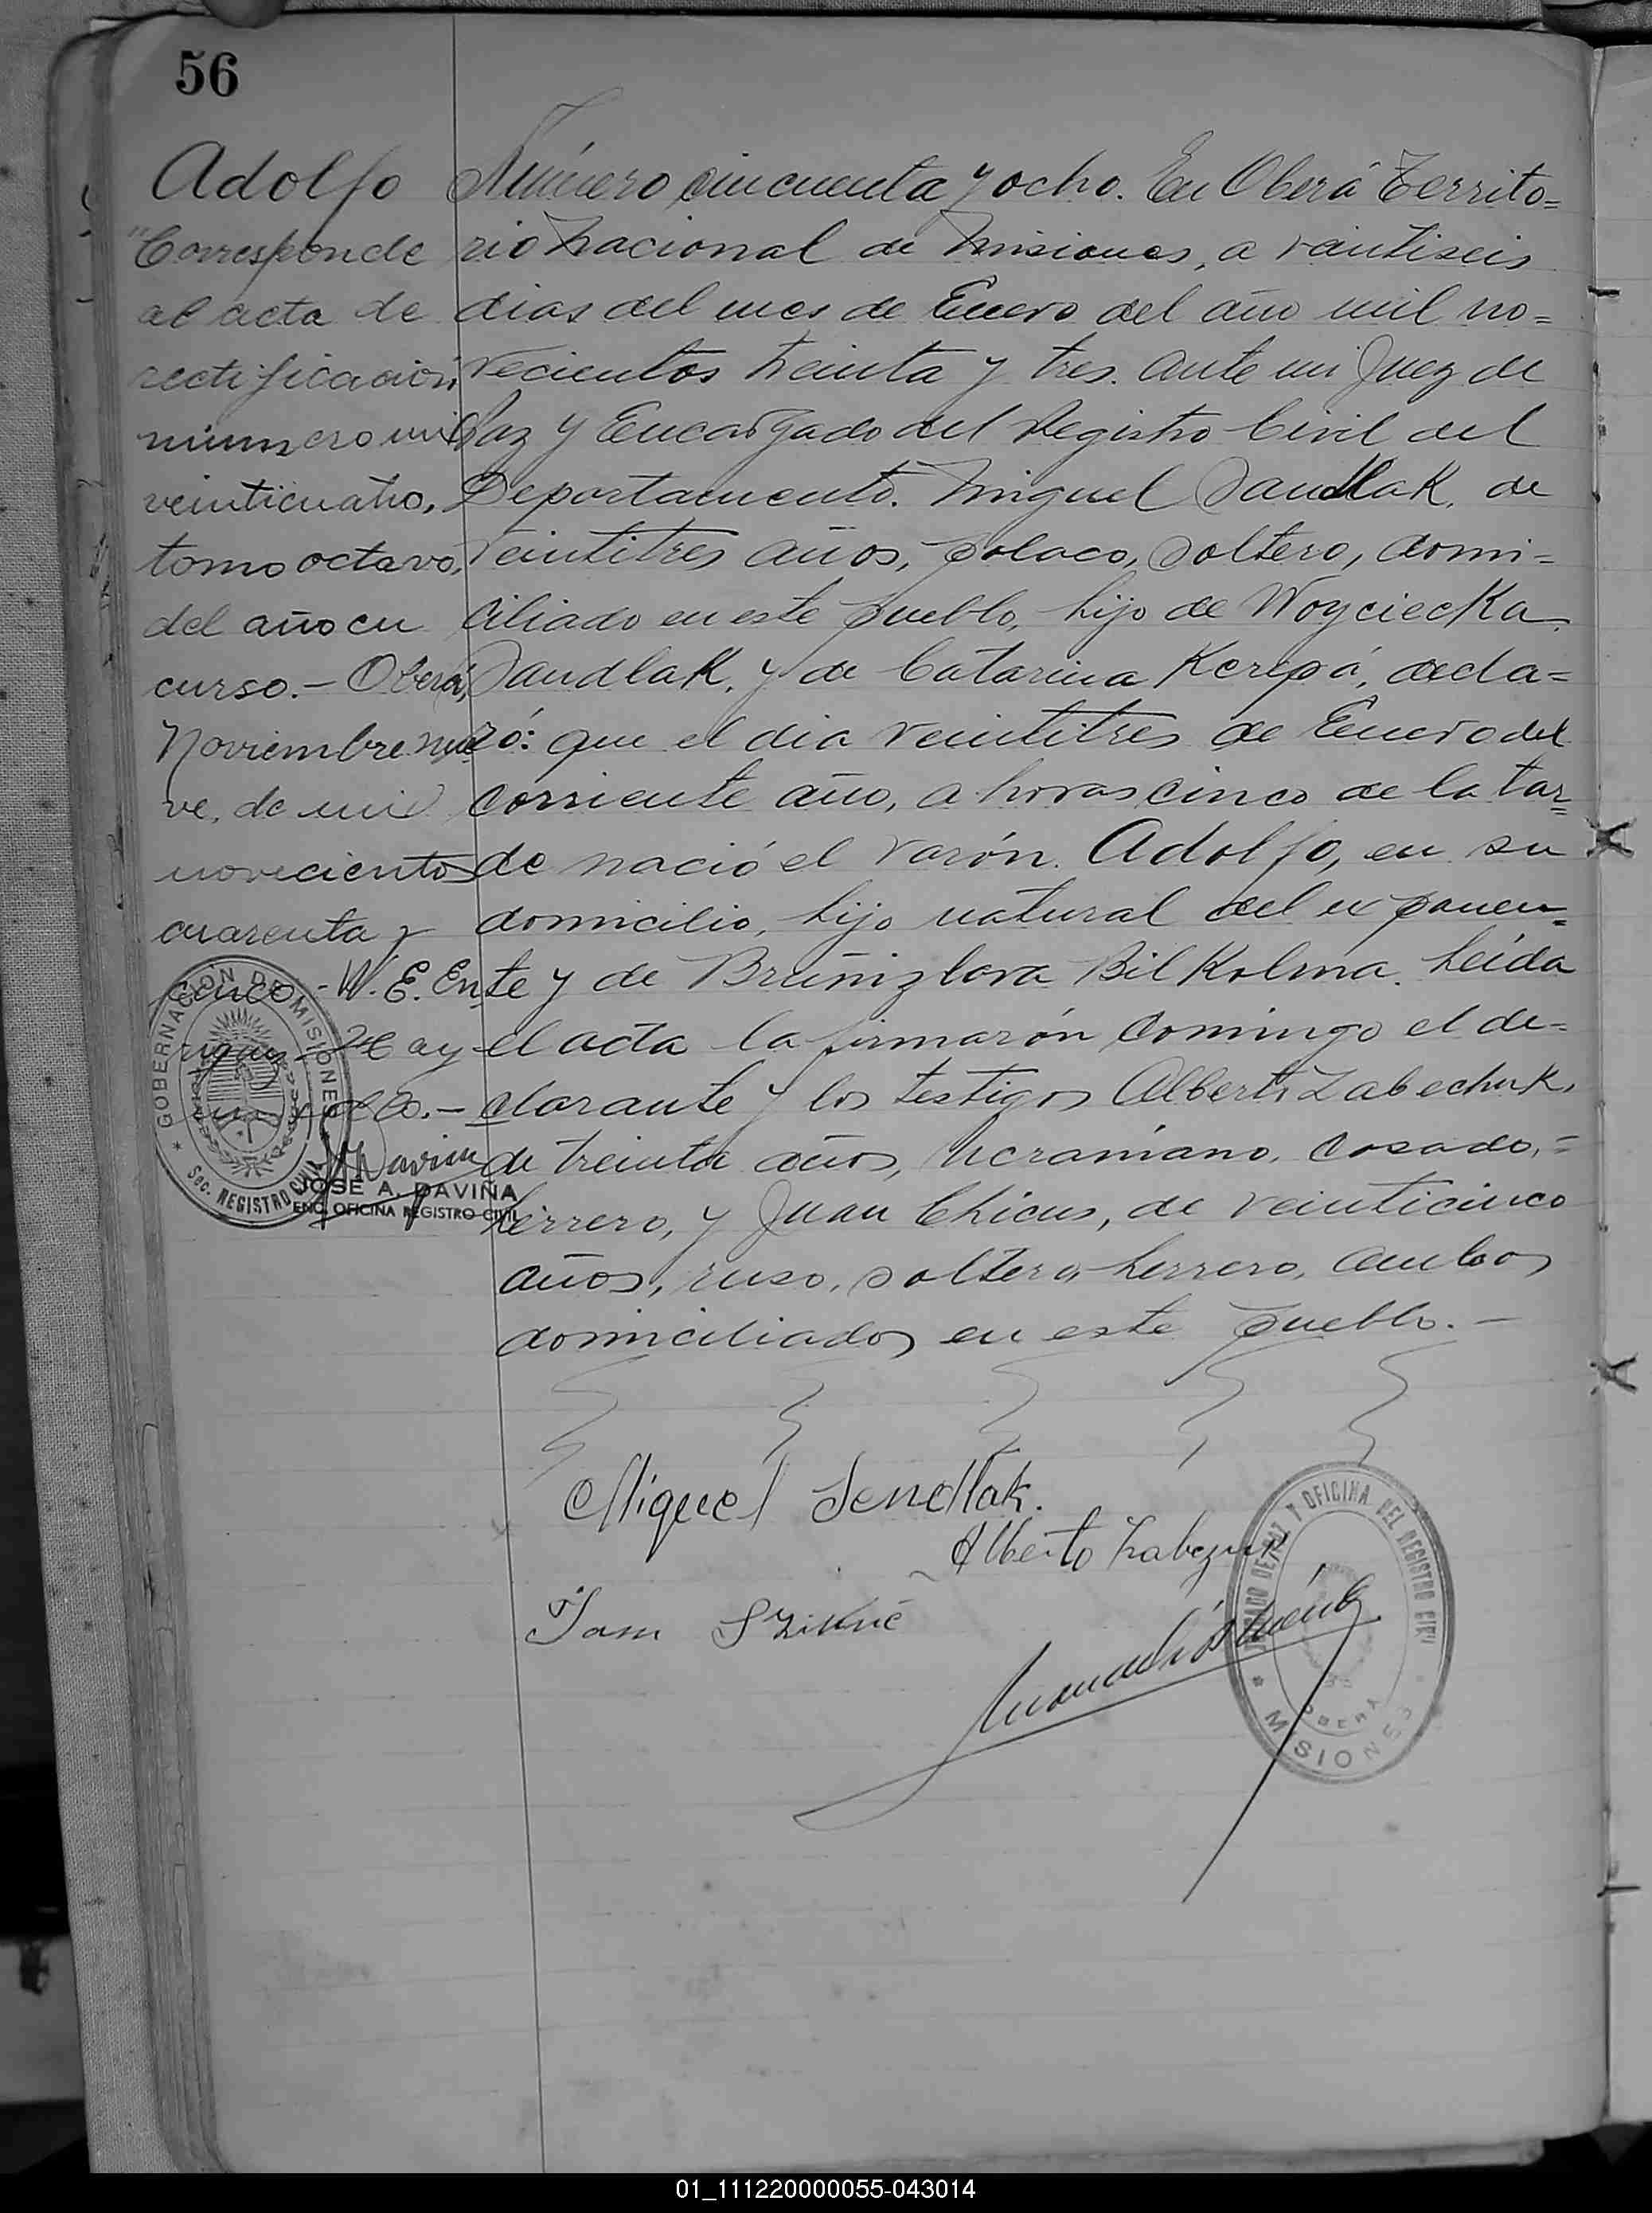 56
Adolfo
"Corresponde
al acta de
rectificación
número mil
veinticuatro,
tomo octavo,
del año en
curso.- Oberá,
Noviembre nue
ve, de mil
novecientos
cuarenta y
cinco.- W. E. En
Hay
un sello.-
GOBERNACIÓN DE MISIONES
Sec. REGISTRO CIVIL
JOSÉ A. DAVIÑA
ENC. OFICINA REGISTRO CIVIL
Número cincuenta y ocho. En Oberá Territo=
rio Nacional de Misiones, a veintiseis
dias del mes de Enero del año mil no=
vecientos treinta y tres. ante mi Juez de
Paz y Encargado del Registro Civil del
Departamento. Miguel Sandlak, de
veintitres años, polaco, soltero, domi=
ciliado en este pueblo, hijo de Woyciecka
Sandlak, y de Catarina Kerepá, decla=
ró: que el dia veintitres de Enero del
corriente año, a horas cinco de la tar=
de nació el varón. Adolfo, en su
domicilio, hijo natural del exponen=
te y de Bruñizlava Bil Kolma. Leída
el acta la firmarón domingo el de=
clarante y los testigos Alberto Zabechuk,
de treinta años, Ucraniano, casado,=
herrero, y Juan Chicus, de veinticinco
años, ruso, soltero, herrero, ambos
domiciliados en este pueblo.-
Miguel Sendlak.
Alberto Zabezuk
JUZGADO DE PAZ Y OFICINA DEL REGISTRO CIVIL
OBERÁ
* MISIONES *
01_111220000055-043014